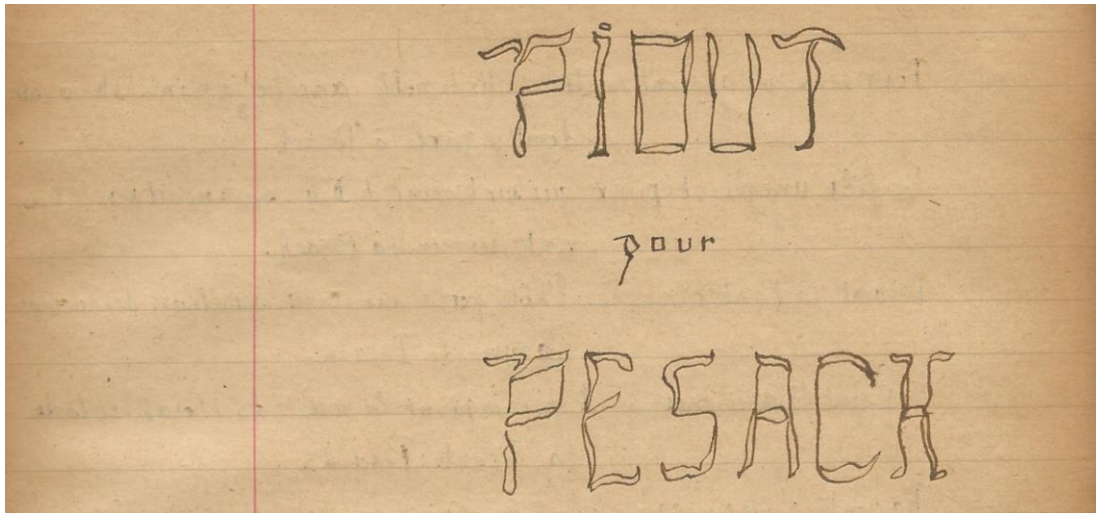 PIOUT
pour
PESACH